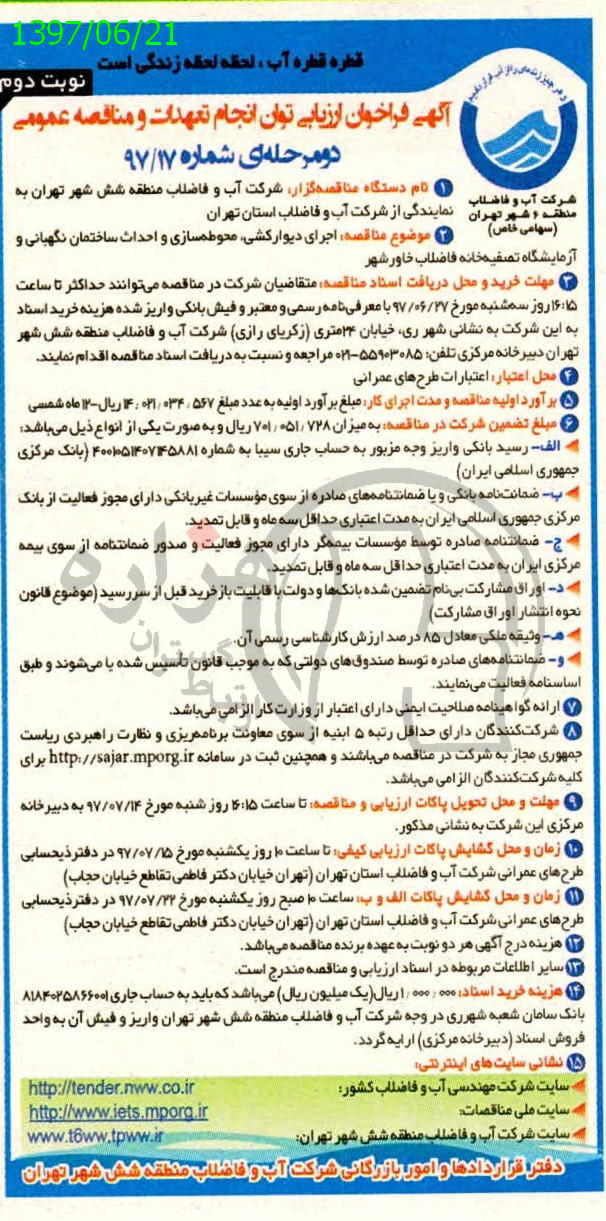 1397/06/21
قطره قطره آب ، لحظه لحظه زندگی است
نوبت دوم
آگهی فراخوان ارزیابی توان انجام تعهدات و مناقصه عمومی
دومرحله‌ای شماره ۹۷/۱۷
شرکت آب و فاضلاب
منطقه ۶ شهر تهران
(سهامی خاص)
۱ نام دستگاه مناقصه‌گزار: شرکت آب و فاضلاب منطقه شش شهر تهران به
نمایندگی از شرکت آب و فاضلاب استان تهران
۲ موضوع مناقصه: اجرای دیوارکشی، محوطه‌سازی و احداث ساختمان نگهبانی و
آزمایشگاه تصفیه‌خانه فاضلاب خاور شهر
۳ مهلت خرید و محل دریافت اسناد مناقصه: متقاضیان شرکت در مناقصه می‌توانند حداکثر تا ساعت
۱۶:۱۵ روز سه‌شنبه مورخ ۹۷/۰۶/۲۷ با معرفی‌نامه رسمی و معتبر و فیش بانکی واریز شده هزینه خرید اسناد
به این شرکت به نشانی شهر ری، خیابان ۲۴متری (زکریای رازی) شرکت آب و فاضلاب منطقه شش شهر
تهران دبیرخانه مرکزی تلفن: ۵۵۹۰۳۰۸۵-۰۲۱ مراجعه و نسبت به دریافت اسناد مناقصه اقدام نمایند.
۴ محل اعتبار: اعتبارات طرح‌های عمرانی
۵ برآورد اولیه مناقصه و مدت اجرای کار: مبلغ برآورد اولیه به عدد مبلغ ۱۴٫۰۲۱٫۰۳۴٫۵۶۷ ریال-۱۲ ماه شمسی
۶ مبلغ تضمین شرکت در مناقصه: به میزان ۷۰۱٫۰۵۱٫۷۲۸ ریال و به صورت یکی از انواع ذیل می‌باشد:
الف- رسید بانکی واریز وجه مزبور به حساب جاری سیبا به شماره ۴۰۰۱۰۵۱۴۰۷۱۴۵۸۸۱ (بانک مرکزی
جمهوری اسلامی ایران)
ب- ضمانت‌نامه بانکی و یا ضمانتنامه‌های صادره از سوی مؤسسات غیربانکی دارای مجوز فعالیت از بانک
مرکزی جمهوری اسلامی ایران به مدت اعتباری حداقل سه ماه و قابل تمدید.
ج- ضمانتنامه صادره توسط مؤسسات بیمه‌گر دارای مجوز فعالیت و صدور ضمانتنامه از سوی بیمه
مرکزی ایران به مدت اعتباری حداقل سه ماه و قابل تمدید.
د- اوراق مشارکت بی‌نام تضمین شده بانک‌ها و دولت با قابلیت بازخرید قبل از سررسید (موضوع قانون
نحوه انتشار اوراق مشارکت)
هـ- وثیقه ملکی معادل ۸۵ درصد ارزش کارشناسی رسمی آن.
و- ضمانتنامه‌های صادره توسط صندوق‌های دولتی که به موجب قانون تأسیس شده یا می‌شوند و طبق
اساسنامه فعالیت می‌نمایند.
۷ ارائه گواهینامه صلاحیت ایمنی دارای اعتبار از وزارت کار الزامی می‌باشد.
۸ شرکت‌کنندگان دارای حداقل رتبه ۵ ابنیه از سوی معاونت برنامه‌ریزی و نظارت راهبردی ریاست
جمهوری مجاز به شرکت در مناقصه می‌باشند و همچنین ثبت در سامانه http://sajar.mporg.ir برای
کلیه شرکت‌کنندگان الزامی می‌باشد.
۹ مهلت و محل تحویل پاکات ارزیابی و مناقصه: تا ساعت ۱۶:۱۵ روز شنبه مورخ ۹۷/۰۷/۱۴ به دبیرخانه
مرکزی این شرکت به نشانی مذکور.
۱۰ زمان و محل گشایش پاکات ارزیابی کیفی: تا ساعت ۱۰ روز یکشنبه مورخ ۹۷/۰۷/۱۵ در دفتر ذیحسابی
طرح‌های عمرانی شرکت آب و فاضلاب استان تهران (تهران خیابان دکتر فاطمی تقاطع خیابان حجاب)
۱۱ زمان و محل گشایش پاکات الف و ب: ساعت ۱۰ صبح روز یکشنبه مورخ ۹۷/۰۷/۲۲ در دفتر ذیحسابی
طرح‌های عمرانی شرکت آب و فاضلاب استان تهران (تهران خیابان دکتر فاطمی تقاطع خیابان حجاب)
۱۲ هزینه درج آگهی هر دو نوبت به عهده برنده مناقصه می‌باشد.
۱۳ سایر اطلاعات مربوطه در اسناد ارزیابی و مناقصه مندرج است.
۱۴ هزینه خرید اسناد: ۱٫۰۰۰٫۰۰۰ ریال(یک میلیون ریال) می‌باشد که باید به حساب جاری ۸۱۸۴۰۲۵۸۶۶۰۰۱
بانک سامان شعبه شهرری در وجه شرکت آب و فاضلاب منطقه شش شهر تهران واریز و فیش آن به واحد
فروش اسناد (دبیرخانه مرکزی) ارایه گردد.
۱۵ نشانی سایت‌های اینترنتی:
سایت شرکت مهندسی آب و فاضلاب کشور: http://tender.nww.co.ir
سایت ملی مناقصات: http://www.iets.mporg.ir
سایت شرکت آب و فاضلاب منطقه شش شهر تهران: www.t6ww.tpww.ir
دفتر قراردادها و امور بازرگانی شرکت آب و فاضلاب منطقه شش شهر تهران